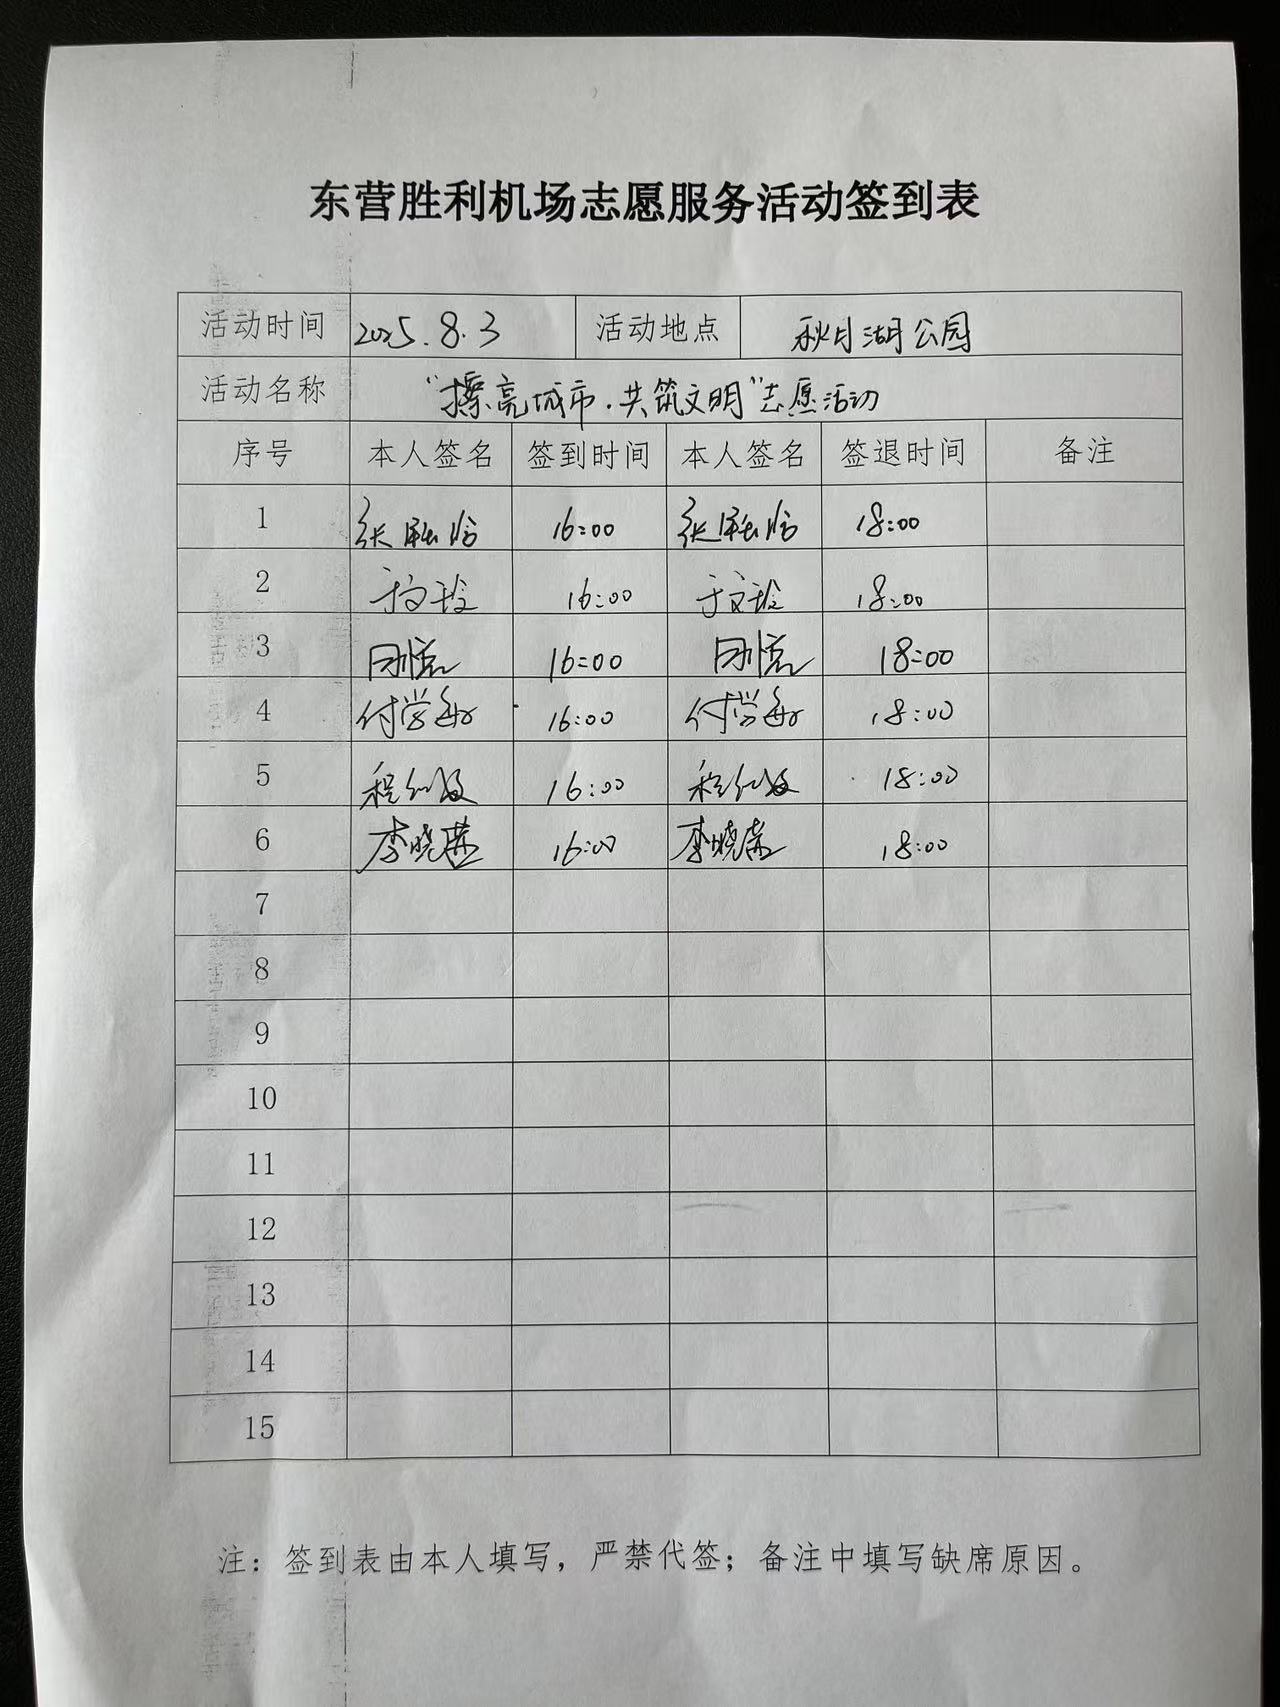 东营胜利机场志愿服务活动签到表
活动时间 2025.8.3 活动地点 秋月湖公园
活动名称 “擦亮城市.共筑文明”志愿活动
序号 本人签名 签到时间 本人签名 签退时间 备注
1 张 16:00 张 18:00
2 于文玲 16:00 于文玲 18:00
3 16:00 18:00
4 付学敏 16:00 付学敏 18:00
5 程红 16:00 程红 18:00
6 李晓燕 16:00 李晓燕 18:00
7
8
9
10
11
12
13
14
15
注：签到表由本人填写，严禁代签；备注中填写缺席原因。